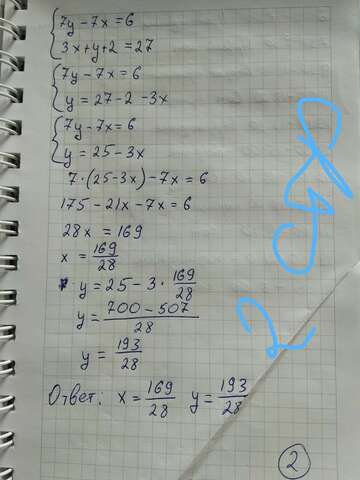 7y - 7x = 6
3x + y + 2 = 27
7y - 7x = 6
y = 27 - 2 - 3x
7y - 7x = 6
y = 25 - 3x
7 · (25 - 3x) - 7x = 6
175 - 21x - 7x = 6
28x = 169
x = 169/28
y = 25 - 3 · 169/28
y = 700 - 507/28
y = 193/28
Ответ: x = 169/28 y = 193/28
2